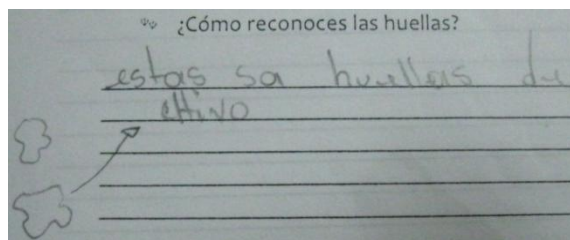 ¿Cómo reconoces las huellas?
estas sa huellas de